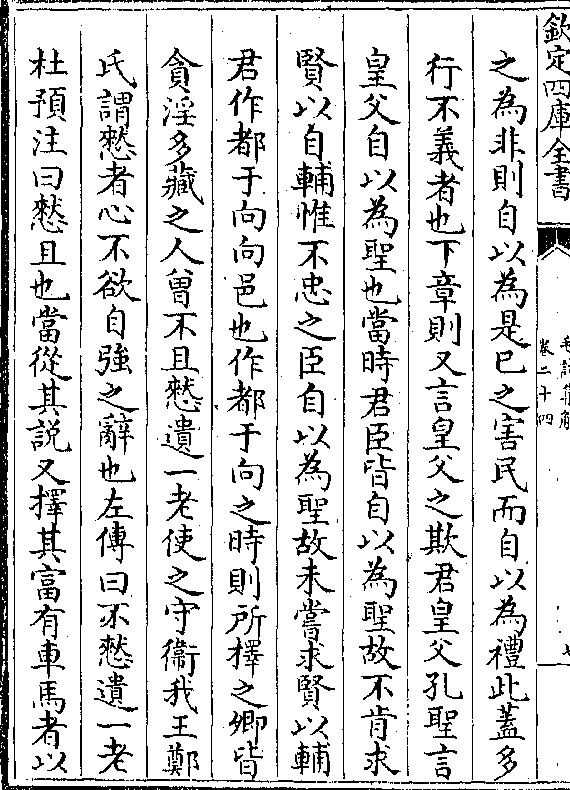 欽定四庫全書
毛詩集解
卷二十四
七
之為非則自以為是已之害民而自以為禮此蓋多
行不義者也下章則又言皇父之欺君皇父孔聖言
皇父自以為聖也當時君臣皆自以為聖故不肯求
賢以自輔惟不忠之臣自以為聖故未嘗求賢以輔
君作都于向向邑也作都于向之時則所擇之卿皆
貪淫多藏之人曾不且憖遺一老使之守衞我王鄭
氏謂憖者心不欲自強之辭也左傳曰不憖遺一老
杜預注曰憖且也當從其說又擇其富有車馬者以